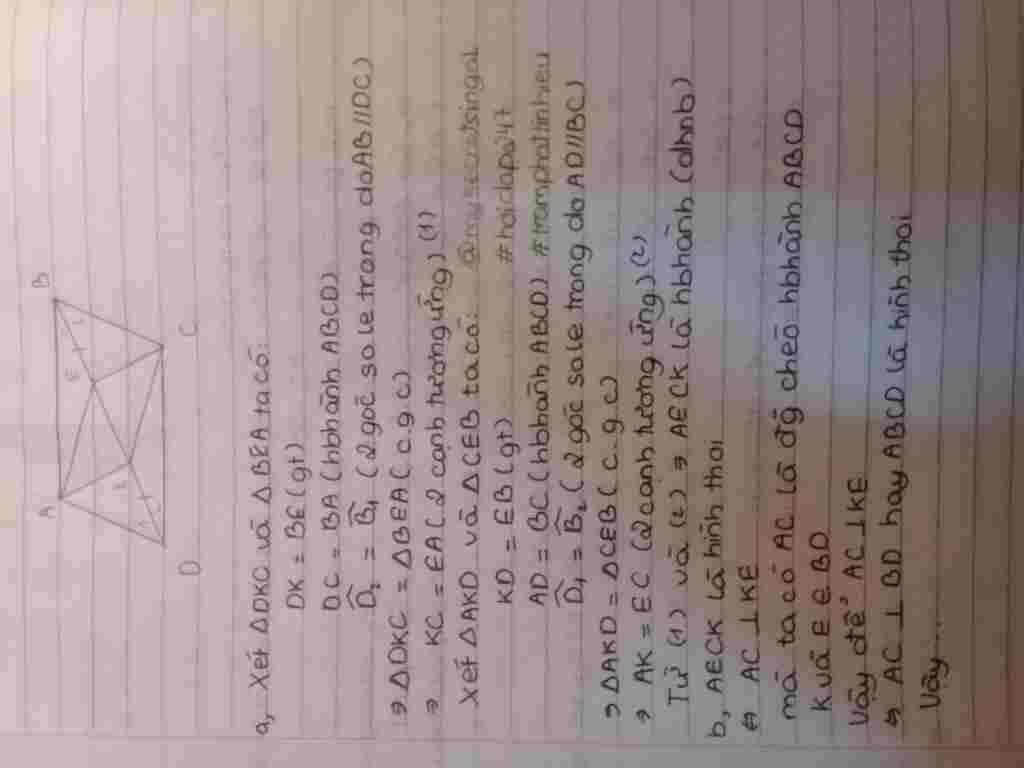 A B
E
1
K
1
D C
a, Xét ΔDKC và ΔBEA ta có:
DK = BE (gt)
DC = BA (hbhành ABCD)
D̂₂ = B̂₁ (2 góc so le trong do AB//DC)
⇒ ΔDKC = ΔBEA (c.g.c)
⇒ KC = EA (2 cạnh tương ứng) (1)
Xét ΔAKD và ΔCEB ta có:
KD = EB (gt) #hoidapa247
AD = BC (hbhành ABCD) #tramphatinhieu
D̂₁ = B̂₂ (2 góc so le trong do AD//BC)
⇒ ΔAKD = ΔCEB (c.g.c)
⇒ AK = EC (2 cạnh tương ứng) (2)
Từ (1) và (2) ⇒ AECK là hbhành (dhnb)
b, AECK là hình thoi
⇔ AC ⊥ KE
mà ta có AC là đg chéo hbhành ABCD
K và E ∈ BD
Vậy để AC ⊥ KE
⇔ AC ⊥ BD hay ABCD là hình thoi
Vậy....